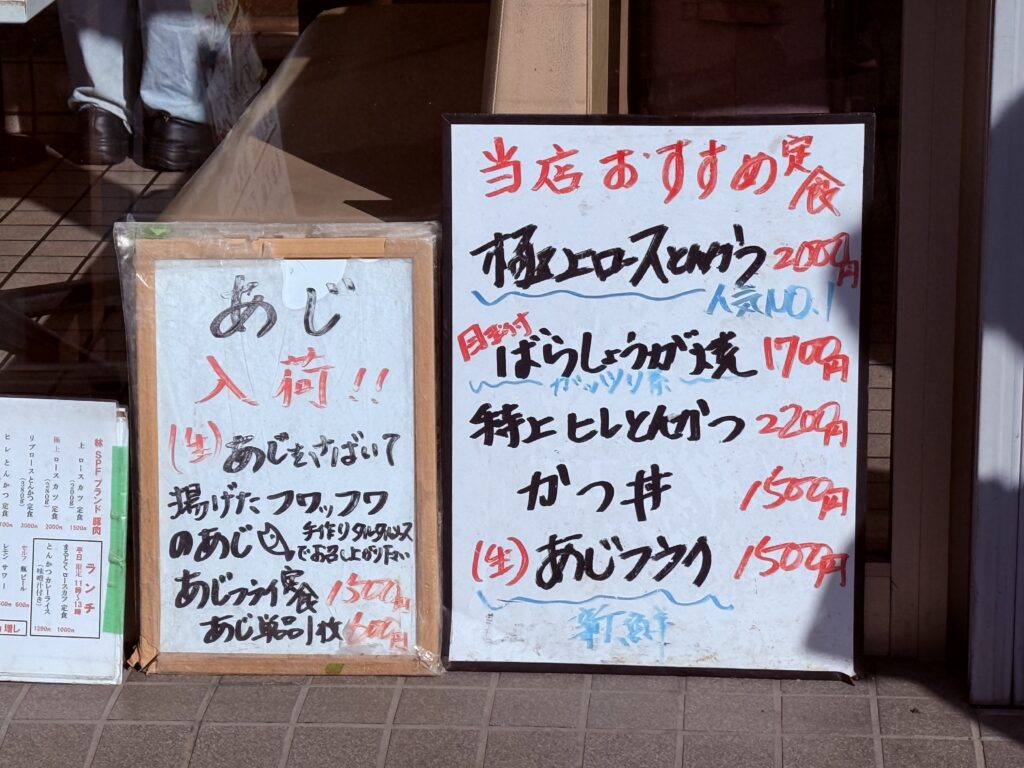 当店おすすめ定食
極上ロースとんかつ 2000円
人気NO.1
ばらしょうが焼 1700円
ガッツリ系
特上ヒレとんかつ 2200円
かつ丼 1500円
(生)あじフライ 1500円
新鮮
あじ
入荷!!
(生)あじをさばいて
揚げたフワッフワ
のあじ 手作りタルタルソース
でお召し上がり下さい
あじフライ定食 1500円
あじ単品1枚 600円
林SPFブランド豚肉
上ロースカツ定食
(200g) 1500円
極上ロースカツ定食
(280g) 2000円
リブロースとんかつ定食
(380g) 3000円
ヒレとんかつ定食
ランチ
平日限定11時～13時
まるとくロースカツ定食
1000円
とんかつカレーライス
(味噌汁付き) 1250円
瓶ビール 600円
レモンサワー
増し